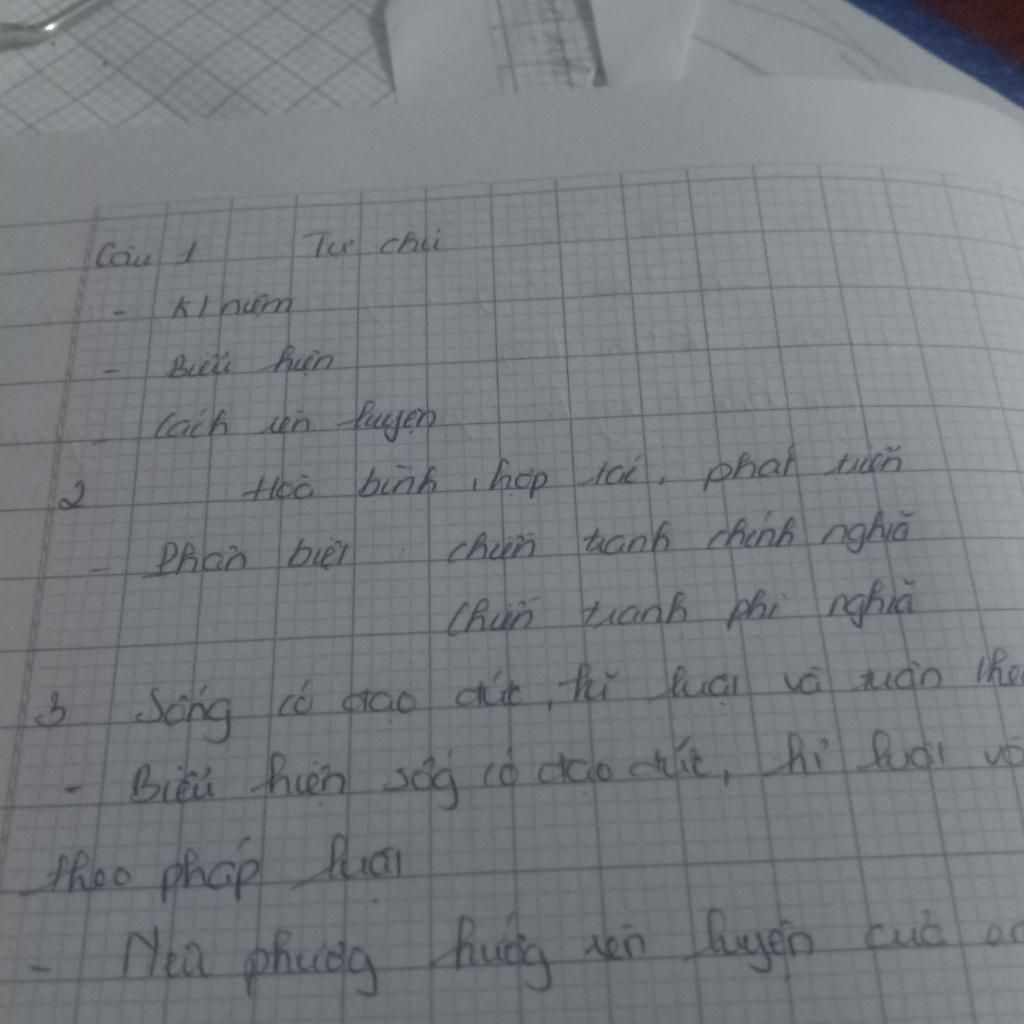 Câu 1 Tự chủ
- K/niệm
- Biểu hiện
- Cách rèn luyện
2 Hoà bình, hợp tác, phát triển
- Phân biệt : chiến tranh chính nghĩa
Chiến tranh phi nghĩa
3 Sống có đạo đức, kỉ luật và tuân theo
- Biểu hiện sốg có đạo đức, kỉ luật và
theo pháp luật
- Nêu phươg hướg rèn luyện của